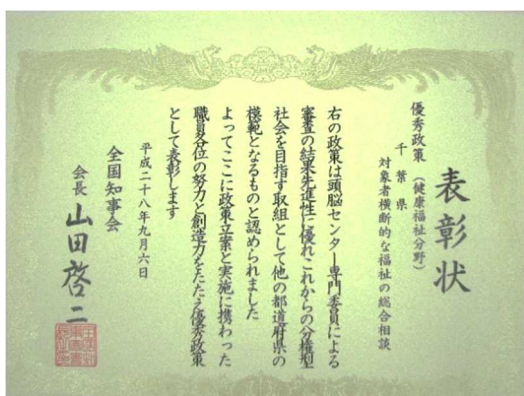 表彰状
優秀政策（健康福祉分野）
千葉県
対象者横断的な福祉の総合相談
右の政策は頭脳センター専門委員による
審査の結果先進性に優れこれからの分権型
社会を目指す取組として他の都道府県の
模範となるものと認められました
よってここに政策立案と実施に携わった
職員各位の努力と創造力をたたえ優秀政策
として表彰します
平成二十八年九月六日
全国知事会
会長 山田啓二